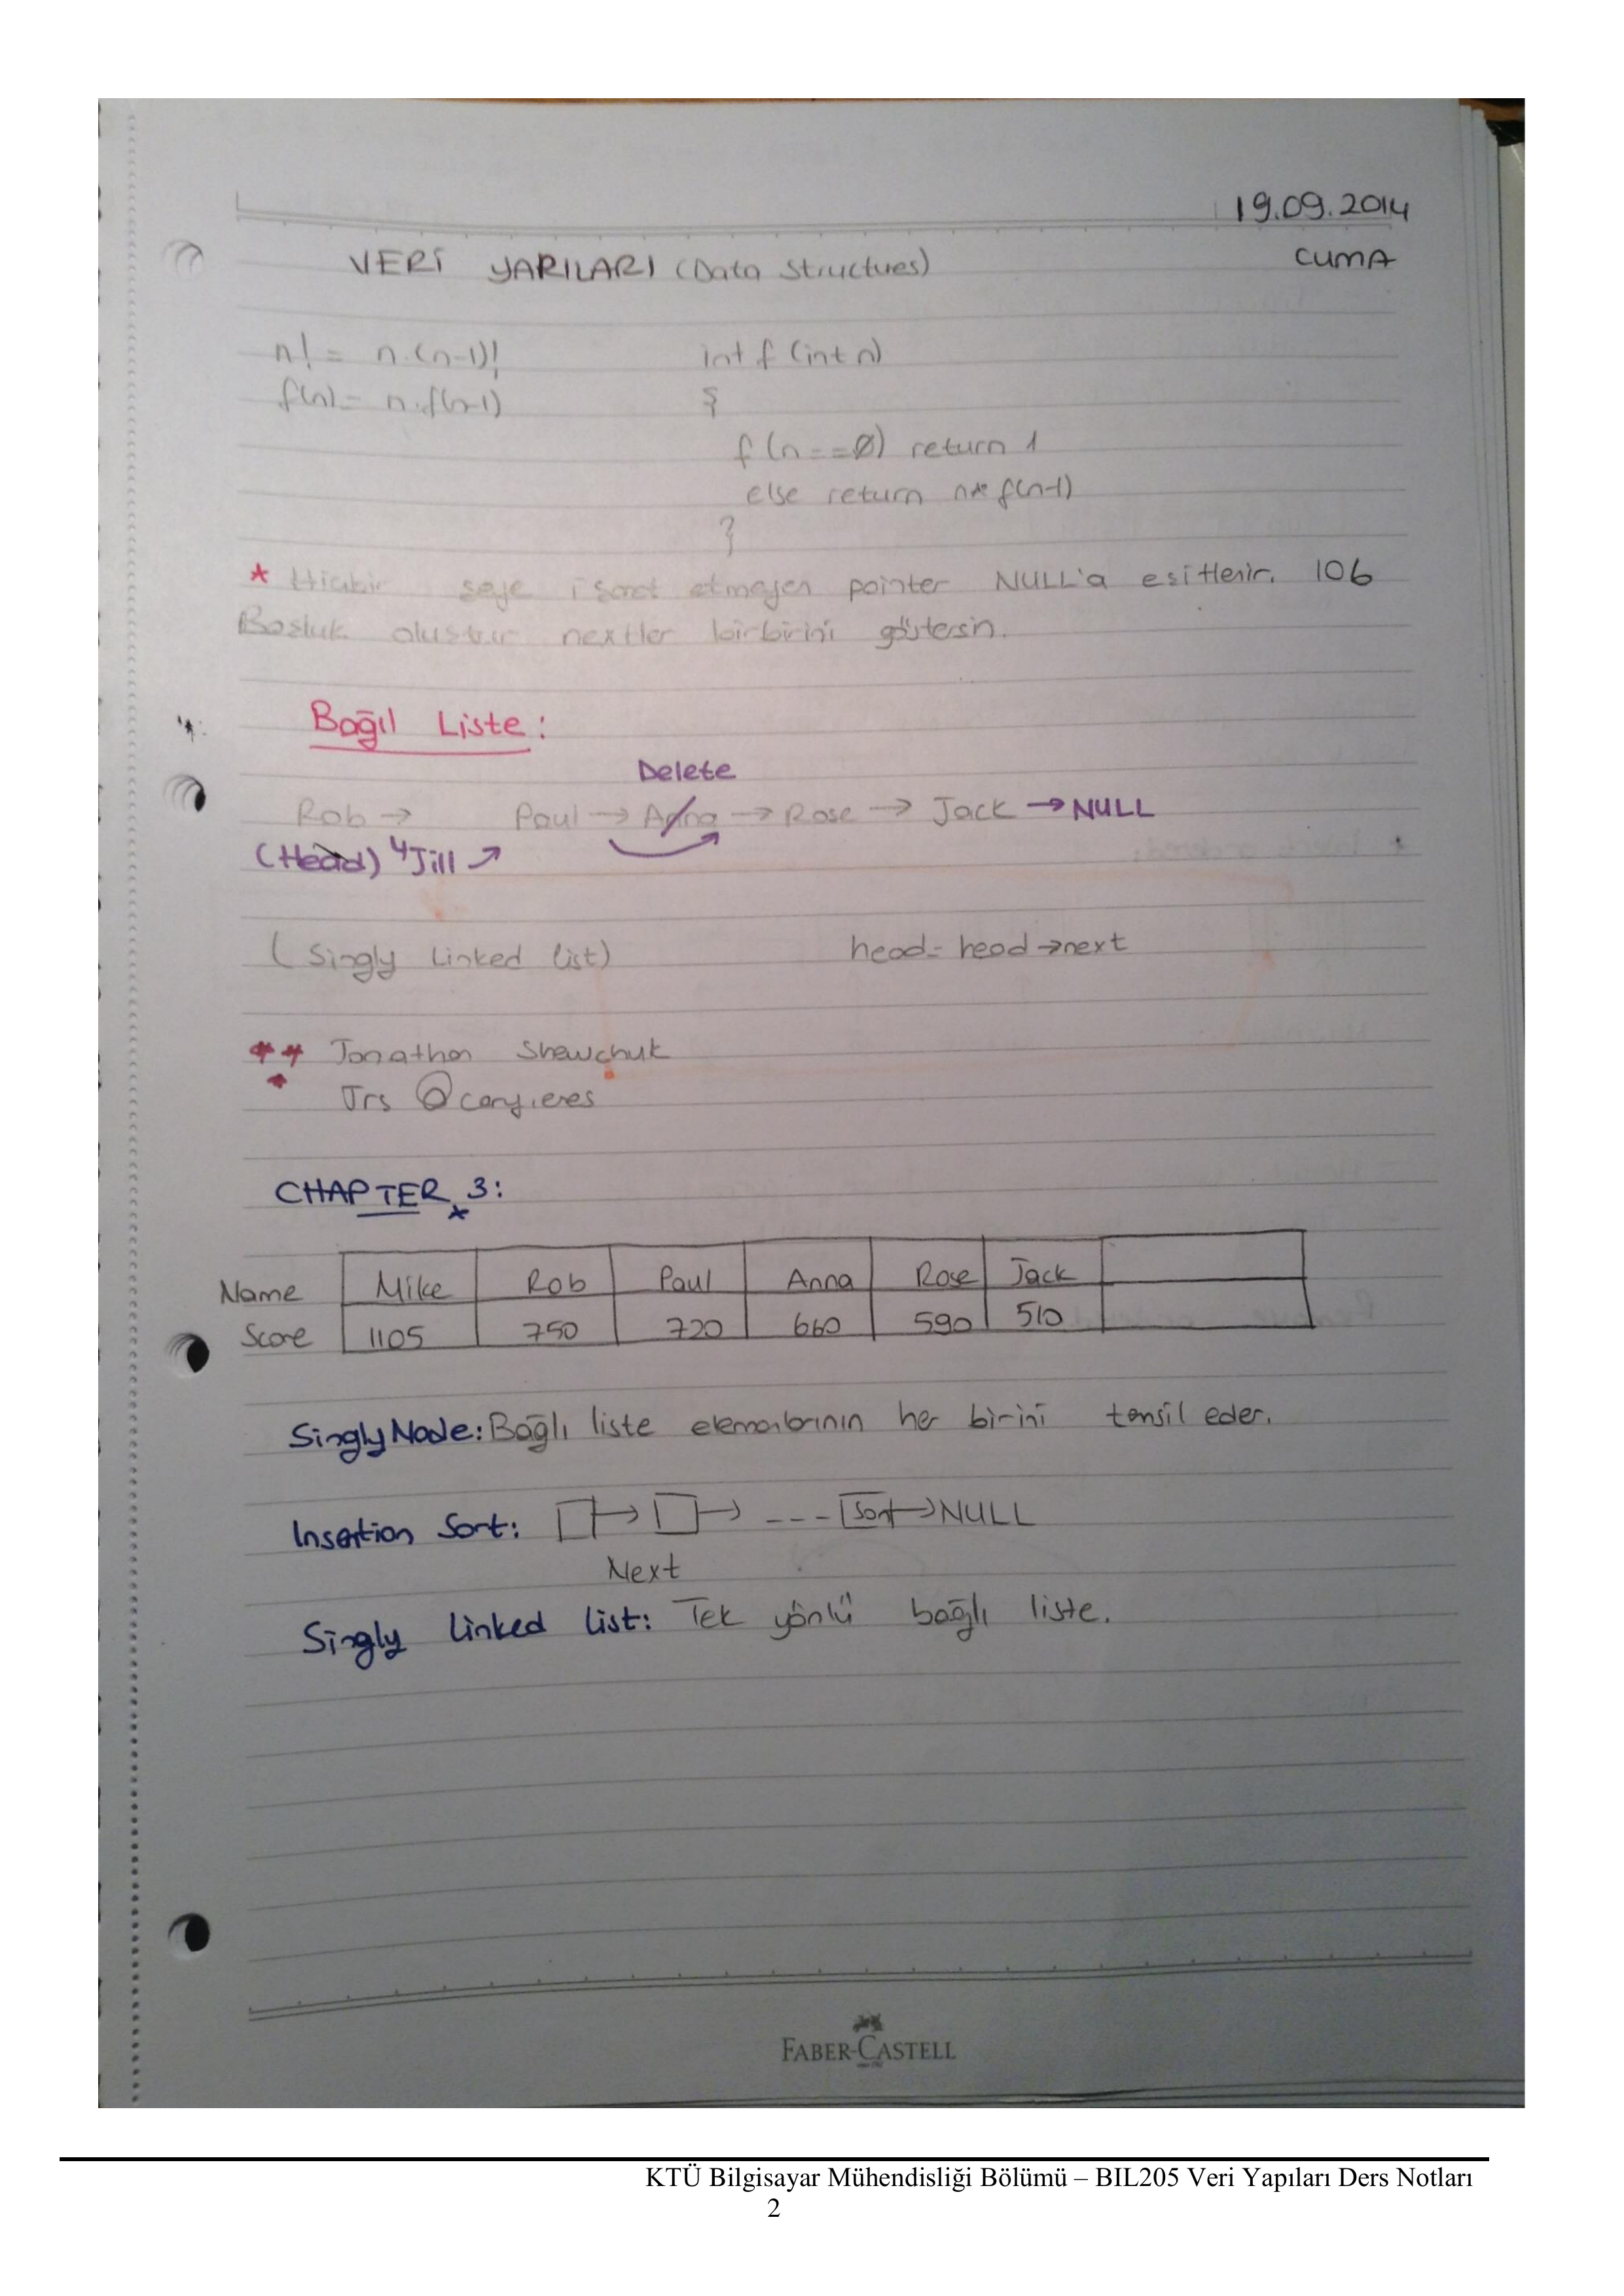 19.09.2014
VERİ YAPILARI (Data Structues)
CUMA
n! = n.(n-1)!
f(n) = n.f(n-1)
int f (int n)
{
f (n==0) return 1
else return n* f(n-1)
}
* Hiçbir şeye işaret etmeyen pointer NULL'a eşitlenir. 106
Boşluk oluştur nextler birbirini göstersin.
Bağıl Liste:
Delete
Rob → Paul → Anna → Rose → Jack → NULL
(Head) Jill ↗
(Singly Linked list) head = head→next
*** Jonathan Shewchuk
Jrs @
CHAPTER 3:
Name Mike Rob Paul Anna Rose Jack
Score 1105 750 720 660 590 510
Singly Node: Bağlı liste elemanlarının her birini temsil eder.
Insertion Sort: → → --- → NULL
Next
Singly Linked List: Tek yönlü bağlı liste.
FABER-CASTELL
KTÜ Bilgisayar Mühendisliği Bölümü – BIL205 Veri Yapıları Ders Notları
2